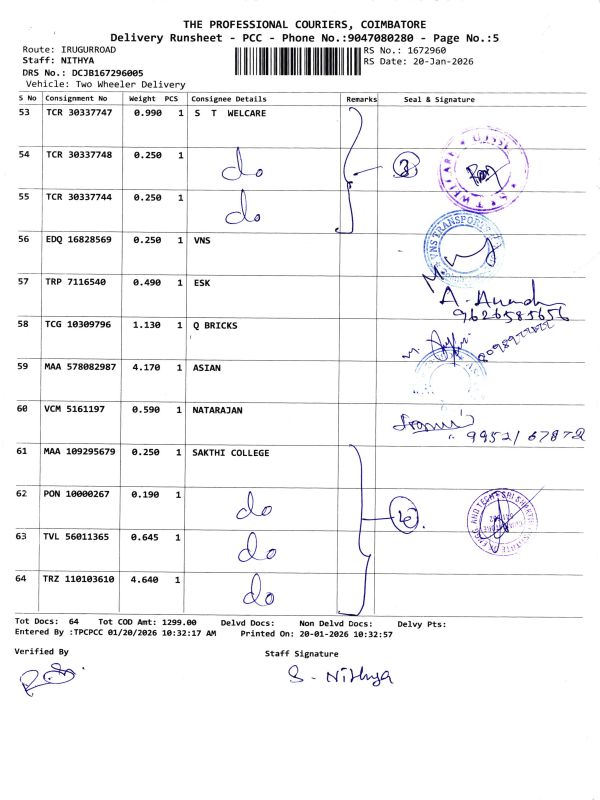 THE PROFESSIONAL COURIERS, COIMBATORE
Delivery Runsheet - PCC - Phone No.:9047080280 - Page No.:5
Route: IRUGURROAD
RS No.: 1672960
Staff: NITHYA
RS Date: 20-Jan-2026
DRS No.: DCJB167296005
Vehicle: Two Wheeler Delivery
S No Consignment No Weight PCS Consignee Details Remarks Seal & Signature
53 TCR 30337747 0.990 1 S T WELCARE
54 TCR 30337748 0.250 1 do
55 TCR 30337744 0.250 1 do
56 EDQ 16828569 0.250 1 VNS
VNS TRANSPORT
57 TRP 7116540 0.490 1 ESK
A. Anand
9626585656
58 TCG 10309796 1.130 1 Q BRICKS
59 MAA 578082987 4.170 1 ASIAN
60 VCM 5161197 0.590 1 NATARAJAN
61 MAA 109295679 0.250 1 SAKTHI COLLEGE
62 PON 10000267 0.190 1 do
63 TVL 56011365 0.645 1 do
64 TRZ 110103610 4.640 1 do
Tot Docs: 64 Tot COD Amt: 1299.00 Delvd Docs: Non Delvd Docs: Delvy Pts:
Entered By :TPCPCC 01/20/2026 10:32:17 AM Printed On: 20-01-2026 10:32:57
Verified By
Staff Signature
S. Nithya